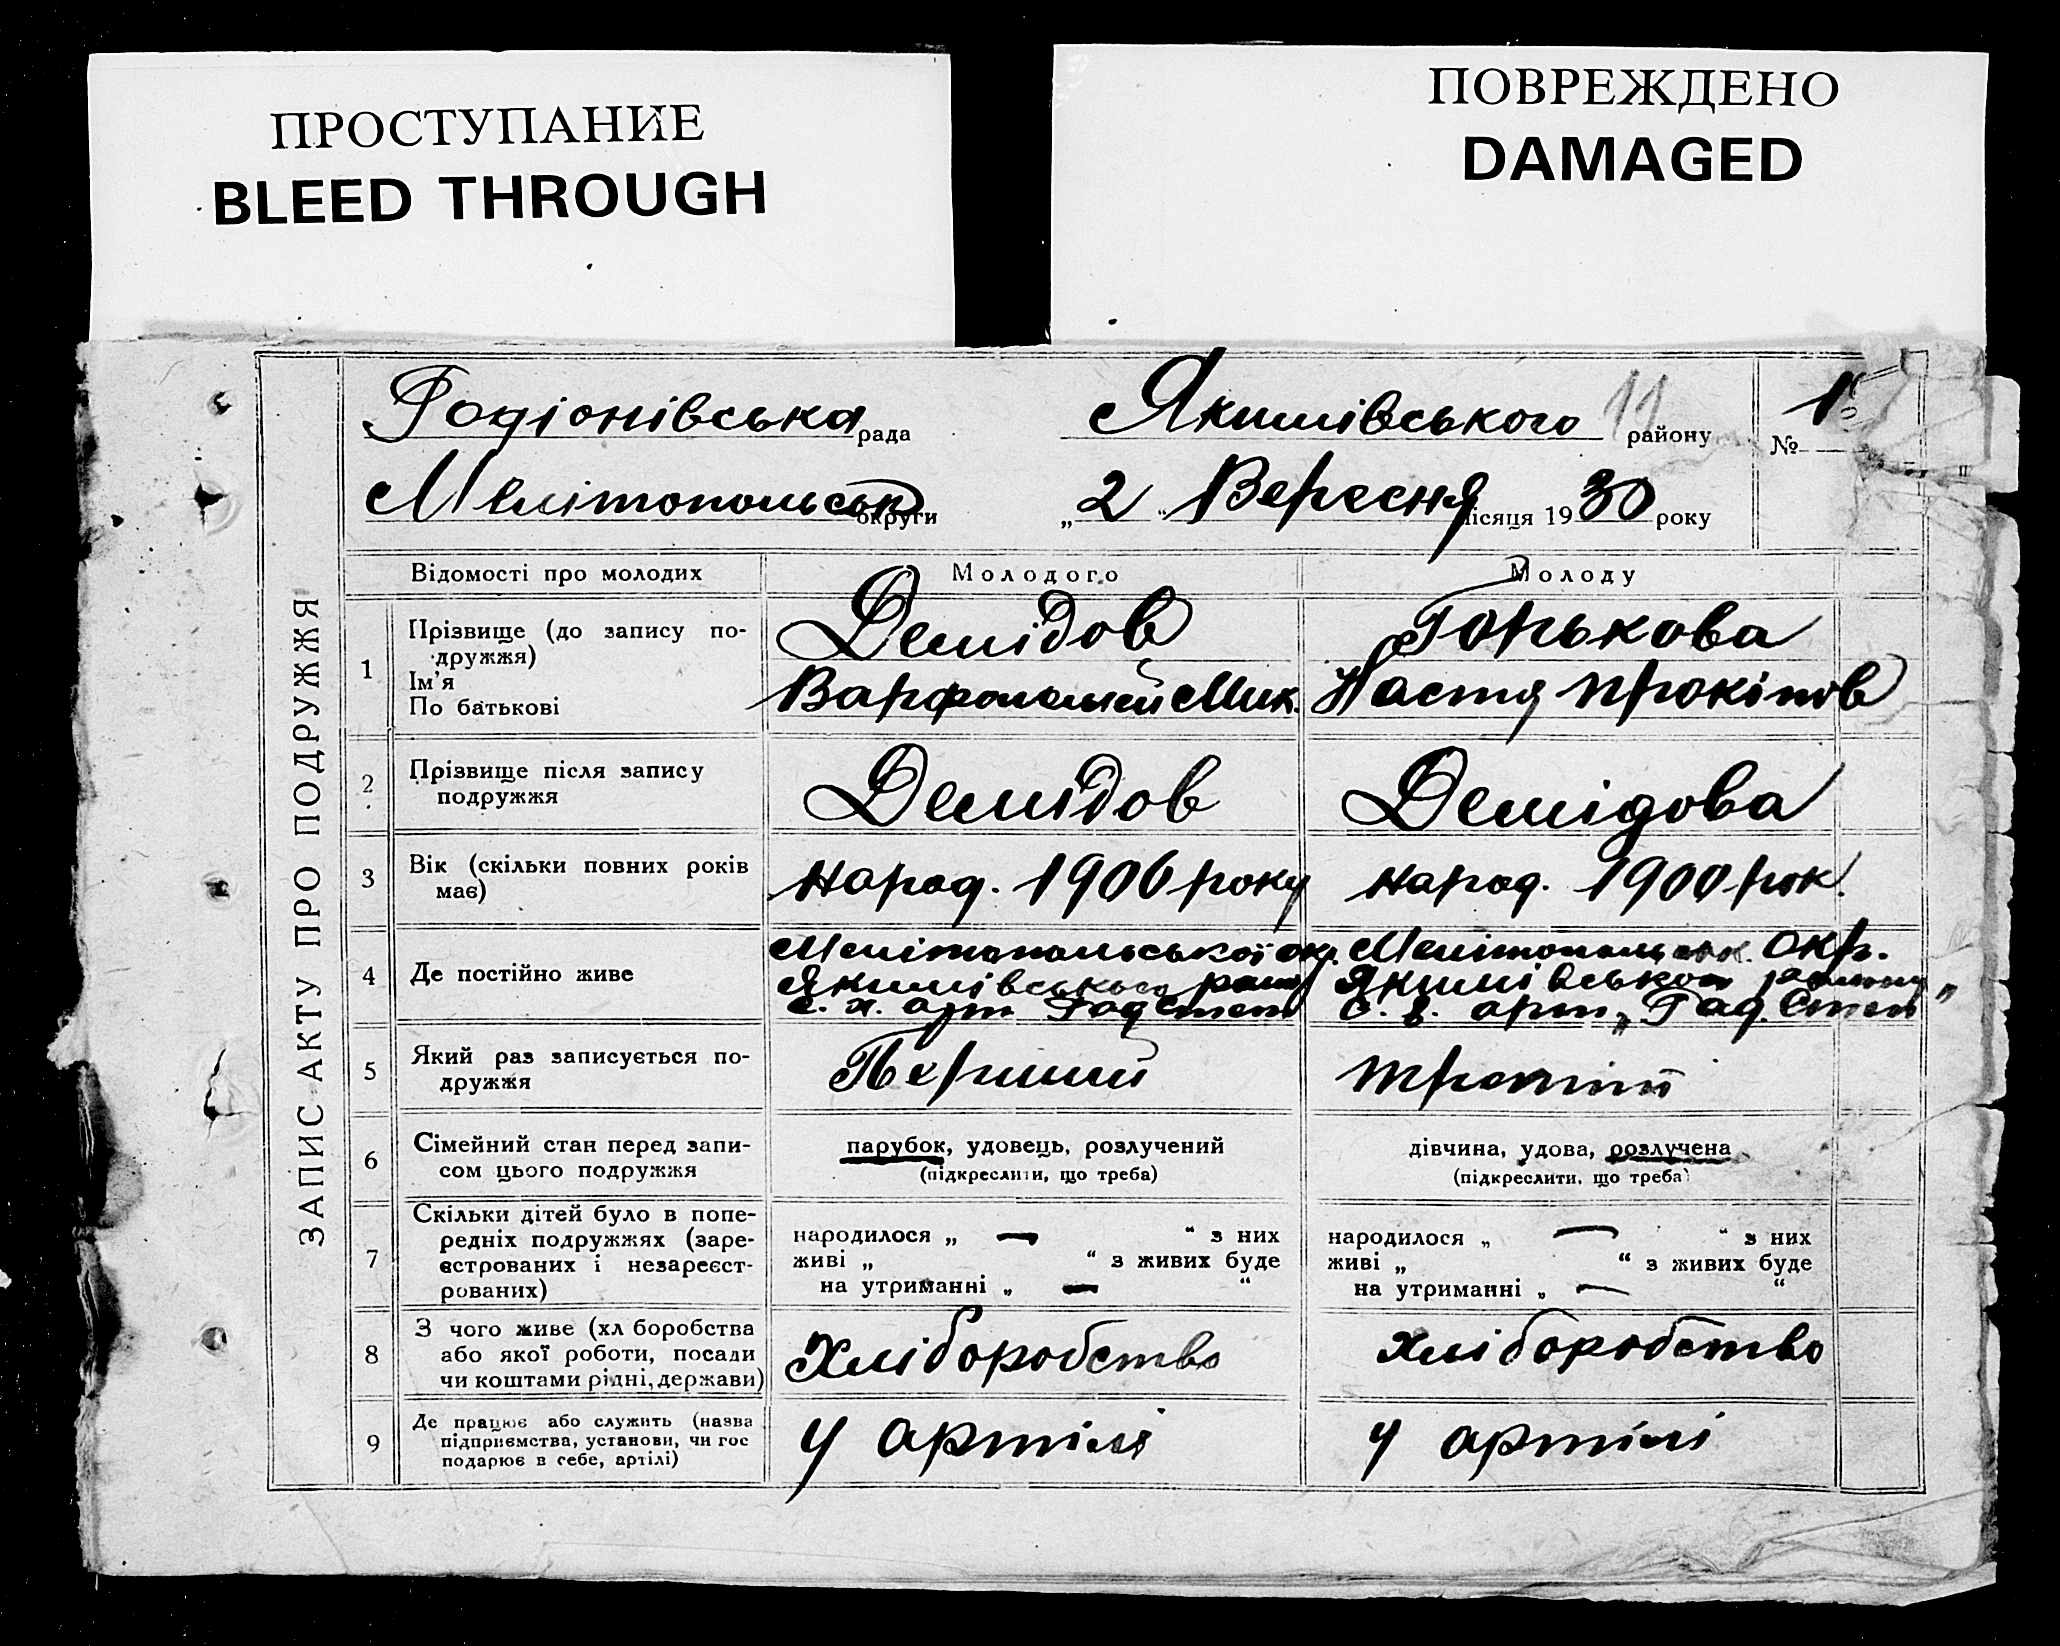 ПРОСТУПАНИЕ
BLEED THROUGH
ПОВРЕЖДЕНО
DAMAGED
ЗАПИС АКТУ ПРО ПОДРУЖЖЯ
Родіонівська рада Якимівського 11 району № 1
Мелітопольськ округи „ 2 “ Вересня місяця 1930 року
Відомості про молодих Молодого Молоду
1 Прізвище (до запису по-
дружжя)
Ім'я
По батькові
Демідов
Варфоломей Мик.
Горькова
Настя Прокіпов
2 Прізвище після запису
подружжя
Демідов
Демідова
3 Вік (скільки повних років
має)
народ. 1906 року
народ. 1900 рок.
4 Де постійно живе
Мелітопольської окр.
Якимівського району
с. х. арт. Рад Степ
Мелітопольськ. окр.
Якимівського району
с. г. арт. „Рад. Степ“
5 Який раз записується по-
дружжя
Перший
третій
6 Сімейний стан перед запи-
сом цього подружжя
парубок, удовець, розлучений
(підкреслити, що треба)
дівчина, удова, розлучена
(підкреслити, що треба)
7 Скільки дітей було в попе-
редніх подружжях (заре-
єстрованих і незареєст-
рованих)
народилося „ — “ з них
живі „ “ з живих буде
на утриманні „ — “
народилося „ — “ з них
живі „ “ з живих буде
на утриманні „ — “
8 З чого живе (хл боробства
або якої роботи, посади
чи коштами рідні, держави)
Хліборобство
хліборобство
9 Де працює або служить (назва
підприємства, установи, чи гос
подарює в себе, артілі)
у артілі
у артілі